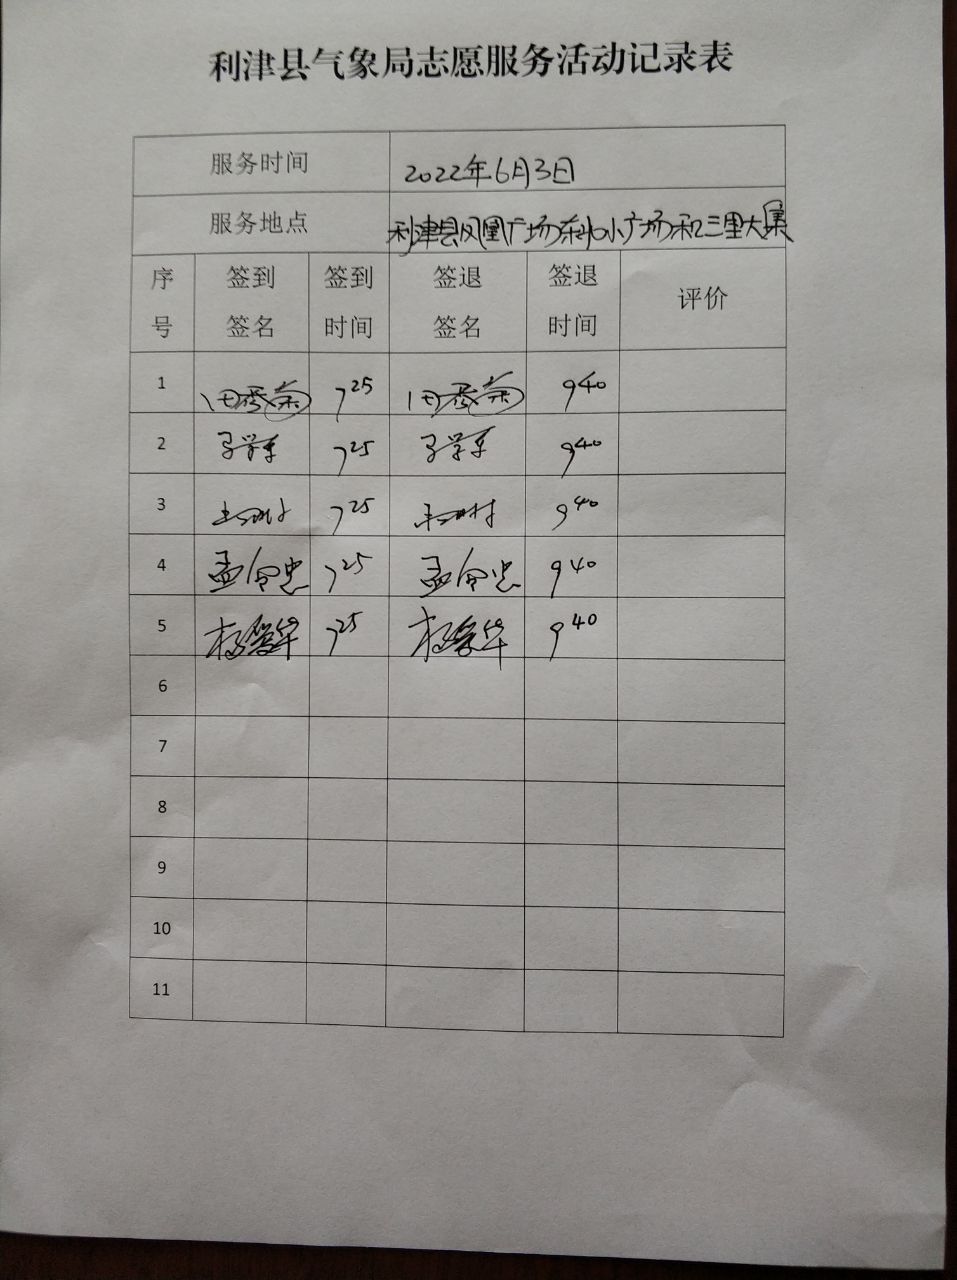 利津县气象局志愿服务活动记录表
服务时间 2022年6月3日
服务地点 利津县凤凰广场东北小广场和三里大集
序号 签到签名 签到时间 签退签名 签退时间 评价
1 田秀菊 7 25 田秀菊 9 40
2 7 25 9 40
3 7 25 9 40
4 孟令忠 7 25 孟令忠 9 40
5 杨学华 7 25 杨学华 9 40
6
7
8
9
10
11